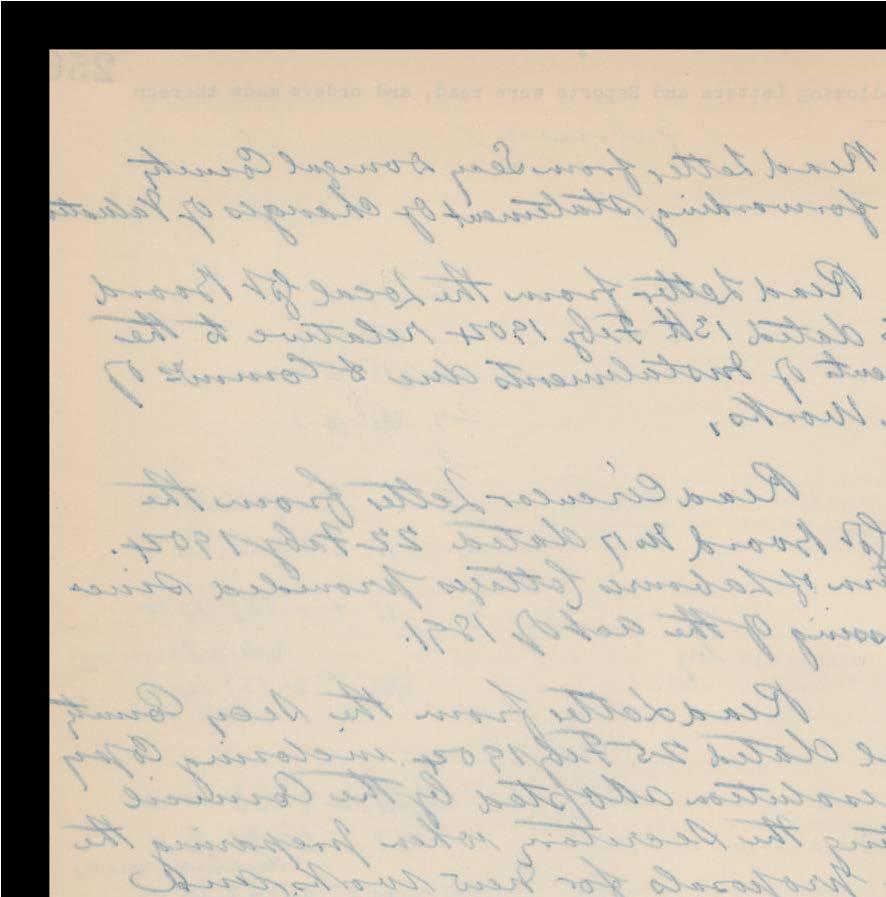 250
Following Letters and Reports were read, and orders made thereon
Read Letter from Secy Donegal County
forwarding Statement of Changes of Valuation
Read Letter from the Local Govt Board
dated 13th Feby 1904 relative to the
of Instalments due to Commrs of
Works.
Read Circular Letter from the
Govt Board No 7 dated 22 Feby 1904.
of Labourers Cottages provided since
passing of the act of 1891.
Read Letter from the Secy County
dated 25 Feby 1904 inclosing Copy
resolution adopted by the Council
the Secretary when preparing the
proposals for new works